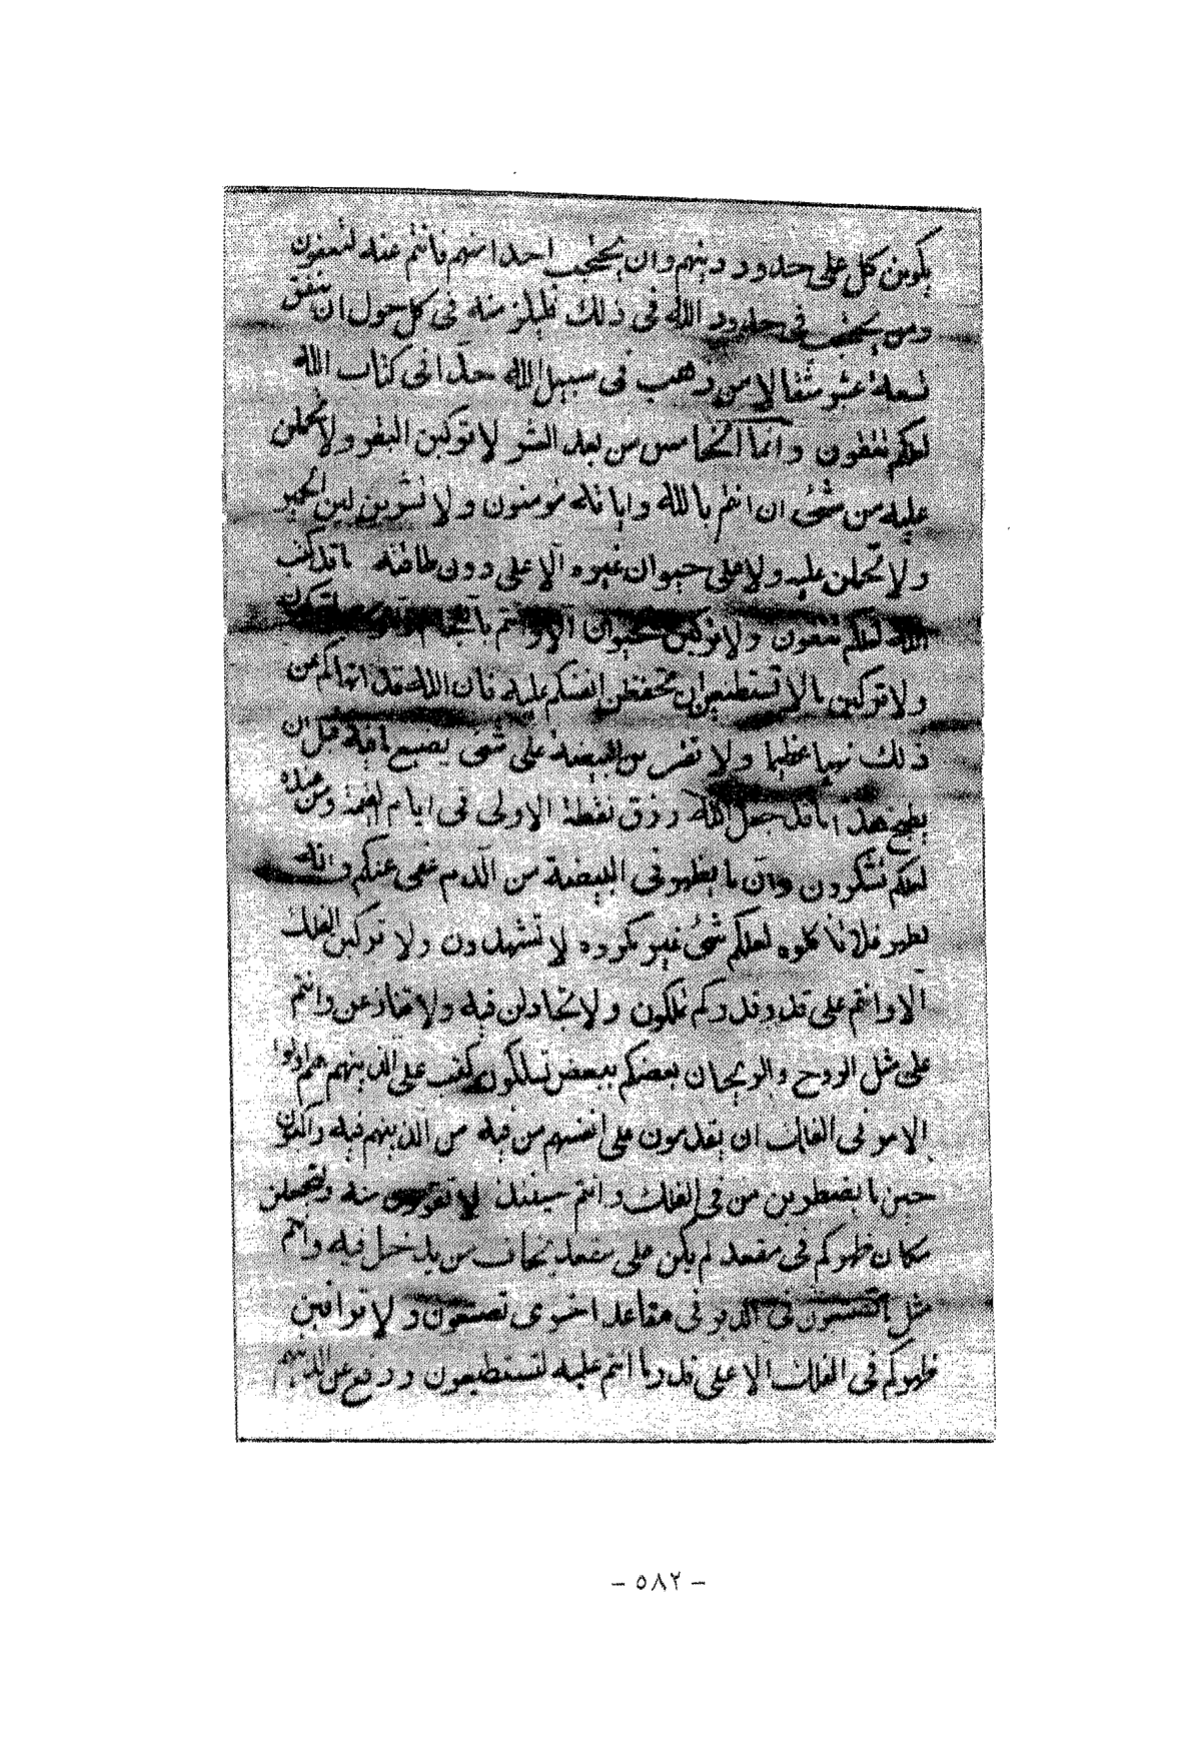 يكونن كل على حدود دينهم وان يحتجب احدا منهم فانتم عنه لتعفون
ومن يحتجب فى حدود الله فى ذلك فليلزمنه فى كل حول ان ينفق
تسعة عشر مثقالا من ذهب فى سبيل الله حدّا فى كتاب الله
لعلكم تتقون وانما الخامس من بعد العشر لا تركبن البقر ولا تحملن
عليه من شئ ان انتم بالله واياته مؤمنون ولا تشربن لبن الحمير
ولا تحملن عليه ولا على حيوان غيره الّا على دون طاقته ما قد كتب
الله لعلكم تتقون ولا تركبن الحيوان الّا وانتم باللجام والركاب لتركبن
ولا تركبن ما لا تستطيعن ان تحفظن انفسكم عليه فان الله قد انهاكم عن
ذلك نهيا عظيما ولا تضربن البيضة على شئ يضيع ما فيه قبل ان
يطبخ هذا ما قد جعل الله رزق نقطة الاولى فى ايام القيمة ومن عنده
لعلكم تشكرون وان ما يظهر فى البيضة من الدم عفى عنكم وانه
لطهر فلا تاكلوه لعلكم شئ غير مكروه لا تشهدون ولا تركبن الفلك
الّا وانتم على قدر قدركم تملكون ولا تجادلن فيه ولا تنازعن وانتم
على مثل الروح والريحان بعضكم ببعض تسلكون كتب على الذينهم هم اولوا
الامر فى الفلك ان يقدمون على انفسهم من فيه من الذينهم فيه راكبون
حين ما يضطربن من فى الفلك وانتم حينئذ لا تقومن منه ولتجعلن
مكان ظهركم فى مقعد لم يكن على مقعد يخاف من يدخل فيه وانتم
مثل ما تصنعون فى البر فى مقاعد اخرى تصنعون ولا تراقبن
ظهركم فى الفلك الّا على قدر ما انتم عليه لتستطيعون ورفع عن الذينهم
- ٥٨٢ -